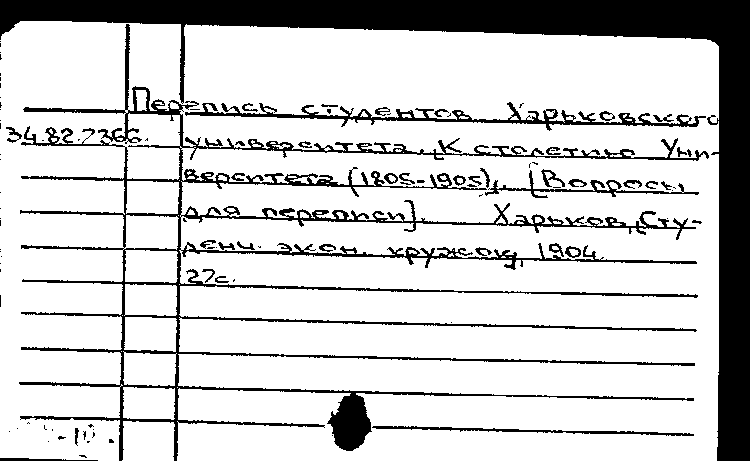 Перепись студентов Харьковского
34.82.7366. университета. „К столетию Уни-
верситета (1805-1905)„. [Вопросы
для переписи]. Харьков, „Сту-
денч. экон. кружок„, 1904.
27с.